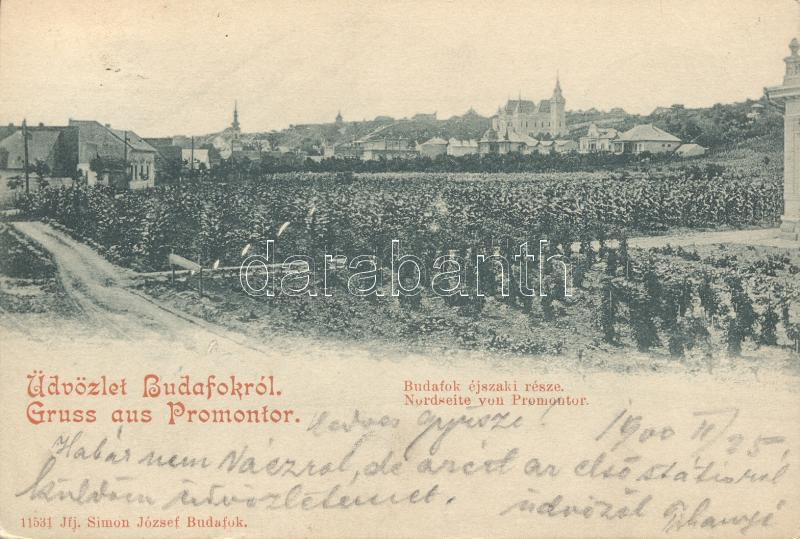 darabanth
Üdvözlet Budafokról.
Gruss aus Promontor.
Budafok éjszaki része.
Nordseite von Promontor.
Kedves Gyusze! 1900 II/25.
Habár nem Váczról, de azért az első státióról
küldöm üdvözletemet. üdvözöl
11531 Jfj. Simon József Budafok.